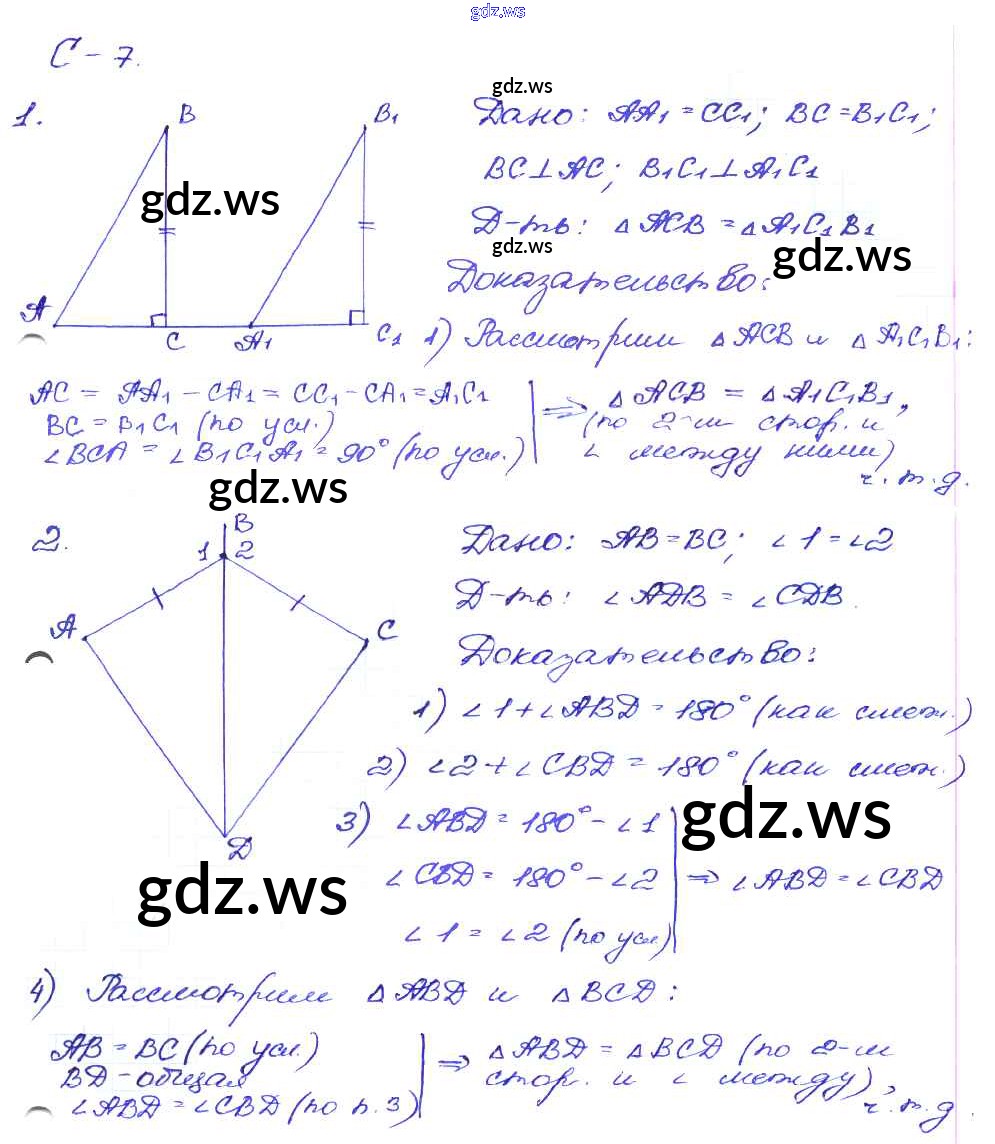 gdz.ws
С-7.
gdz.ws
1.
B
B₁
Дано: AA₁ = CC₁; BC = B₁C₁;
BC⊥AC; B₁C₁⊥A₁C₁
gdz.ws
Д-ть: △ACB = △A₁C₁B₁
gdz.ws
gdz.ws
Доказательство:
A
C
A₁
C₁
1) Рассмотрим △ACB и △A₁C₁B₁:
AC = AA₁ - CA₁ = CC₁ - CA₁ = A₁C₁
BC = B₁C₁ (по усл.)
∠BCA = ∠B₁C₁A₁ = 90° (по усл.)
⇒ △ACB = △A₁C₁B₁,
(по 2-м стор. и
∠ между ними)
ч.т.д.
gdz.ws
2.
B
1 2
A
C
D
Дано: AB = BC; ∠1 = ∠2
Д-ть: ∠ADB = ∠CDB.
Доказательство:
1) ∠1 + ∠ABD = 180° (как смеж.)
2) ∠2 + ∠CBD = 180° (как смеж.)
gdz.ws
3) ∠ABD = 180° - ∠1
∠CBD = 180° - ∠2
∠1 = ∠2 (по усл.)
⇒ ∠ABD = ∠CBD
gdz.ws
4) Рассмотрим △ABD и △BCD:
AB = BC (по усл.)
BD - общая
∠ABD = ∠CBD (по п.3)
⇒ △ABD = △BCD (по 2-м
стор. и ∠ между),
ч.т.д.